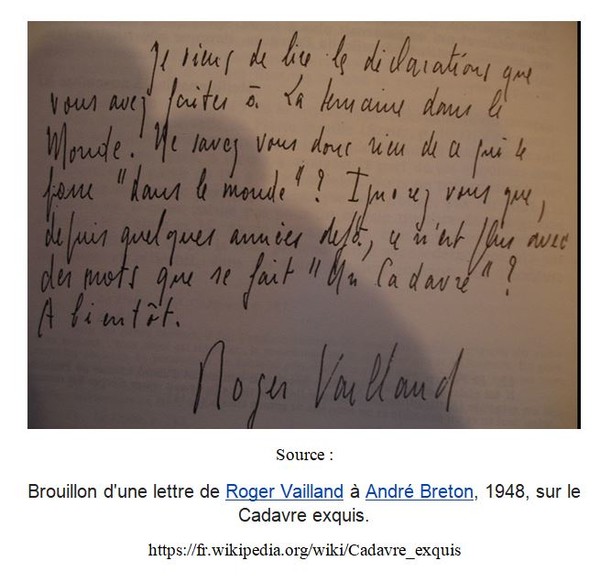 Je viens de lire les déclarations que
vous avez faites à La Semaine dans le
Monde. Ne savez vous donc rien de ce qui se
passe "dans le monde" ? Ignorez vous que,
depuis quelques années déjà, ce n'est plus avec
des mots que se fait "Un Cadavre" ?
A bientôt.
Roger Vailland
Source :
Brouillon d'une lettre de Roger Vailland à André Breton, 1948, sur le
Cadavre exquis.
https://fr.wikipedia.org/wiki/Cadavre_exquis